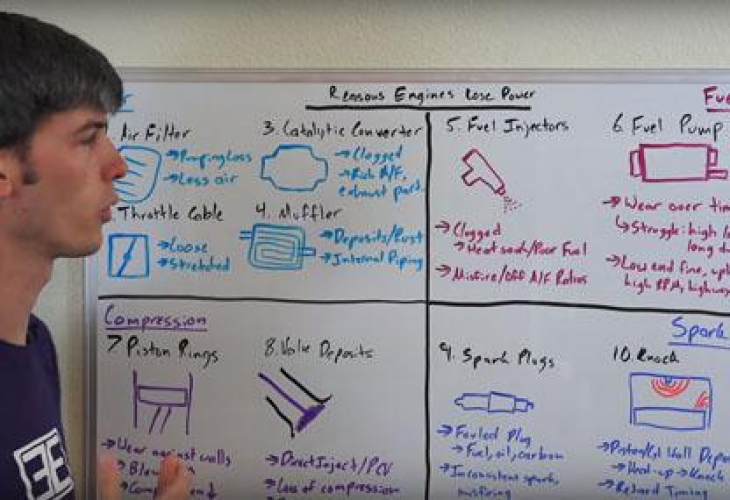 Reasons Engines Lose Power
Fue
Air Filter
→Pumping Loss
→Less air
Throttle Cable
→Loose
→Stretched
3. Catalytic Converter
→Clogged
→Rich A/F,
exhaust part.
4. Muffler
→Deposits/Rust
→Internal Piping
5. Fuel Injectors
→Clogged
→Heat soak/Poor Fuel
→Misfire/Off A/F Ratios
6. Fuel Pump
→Wear over tim
↳Struggle: high l
long du
→Low end fine, up
high RPM, highw
Compression
7 Piston Rings
→Wear against walls
→Blow
Comp
8. Valve Deposits
→Direct Inject/PCV
→Loss of compression
Spark
9. Spark Plugs
→Fouled Plug
→Fuel, oil, carbon
→Inconsistent spark,
misfiring
10. Knock
→Piston/Cyl Wall Depo
→Heat-up→Knock
→Retard Timing